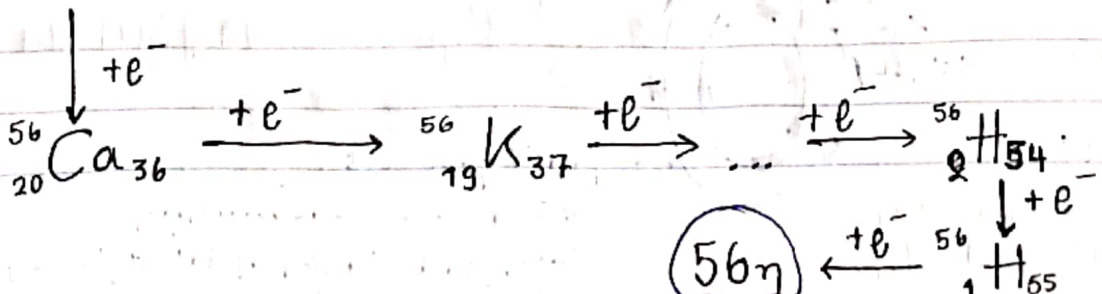 +e⁻
⁵⁶₂₀Ca₃₆ +e⁻ → ⁵⁶₁₉K₃₇ +e⁻ → .... +e⁻ → ⁵⁶₂H₅₄
+e⁻
56n ← +e⁻ ⁵⁶₁H₅₅